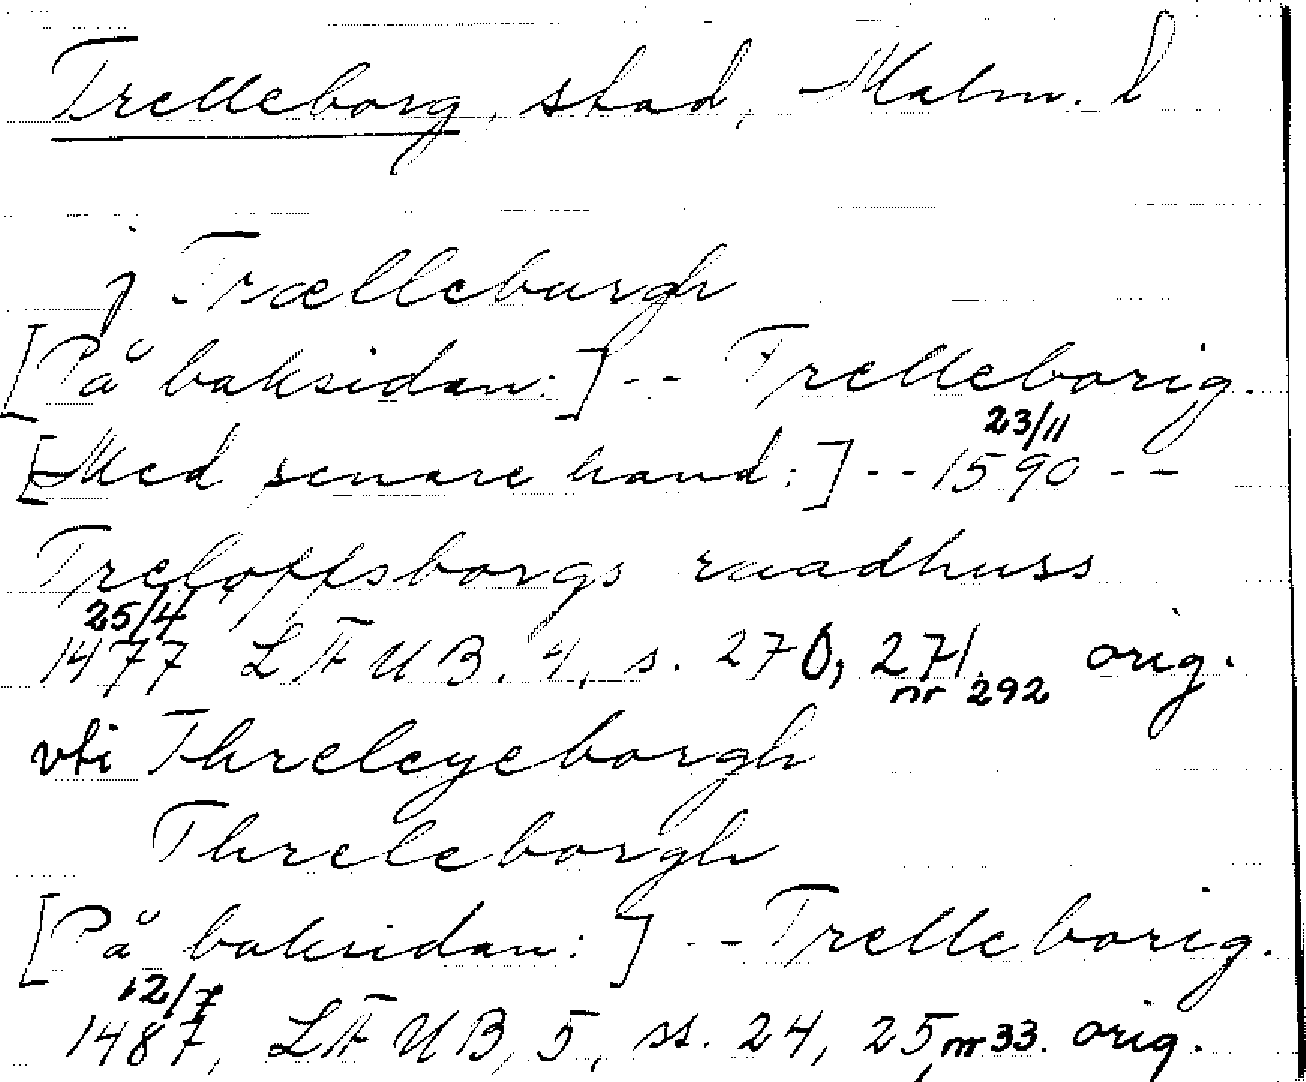 Trelleborg, stad, Malm. l
j Trælleburgh
[På baksidan:] -- Trelleborig.
[Med senare hand:] -- 23/11 1590 --
Treloffsborgs raadhuss
25/4
1477 LÄUB. 4, s. 270, 271, nr 292 orig.
vti Threleyeborgh
Threleborgh
[På baksidan:] -- Trelleborig.
12/7
1487, LÄUB, 5, ss. 24, 25, nr 33. orig.